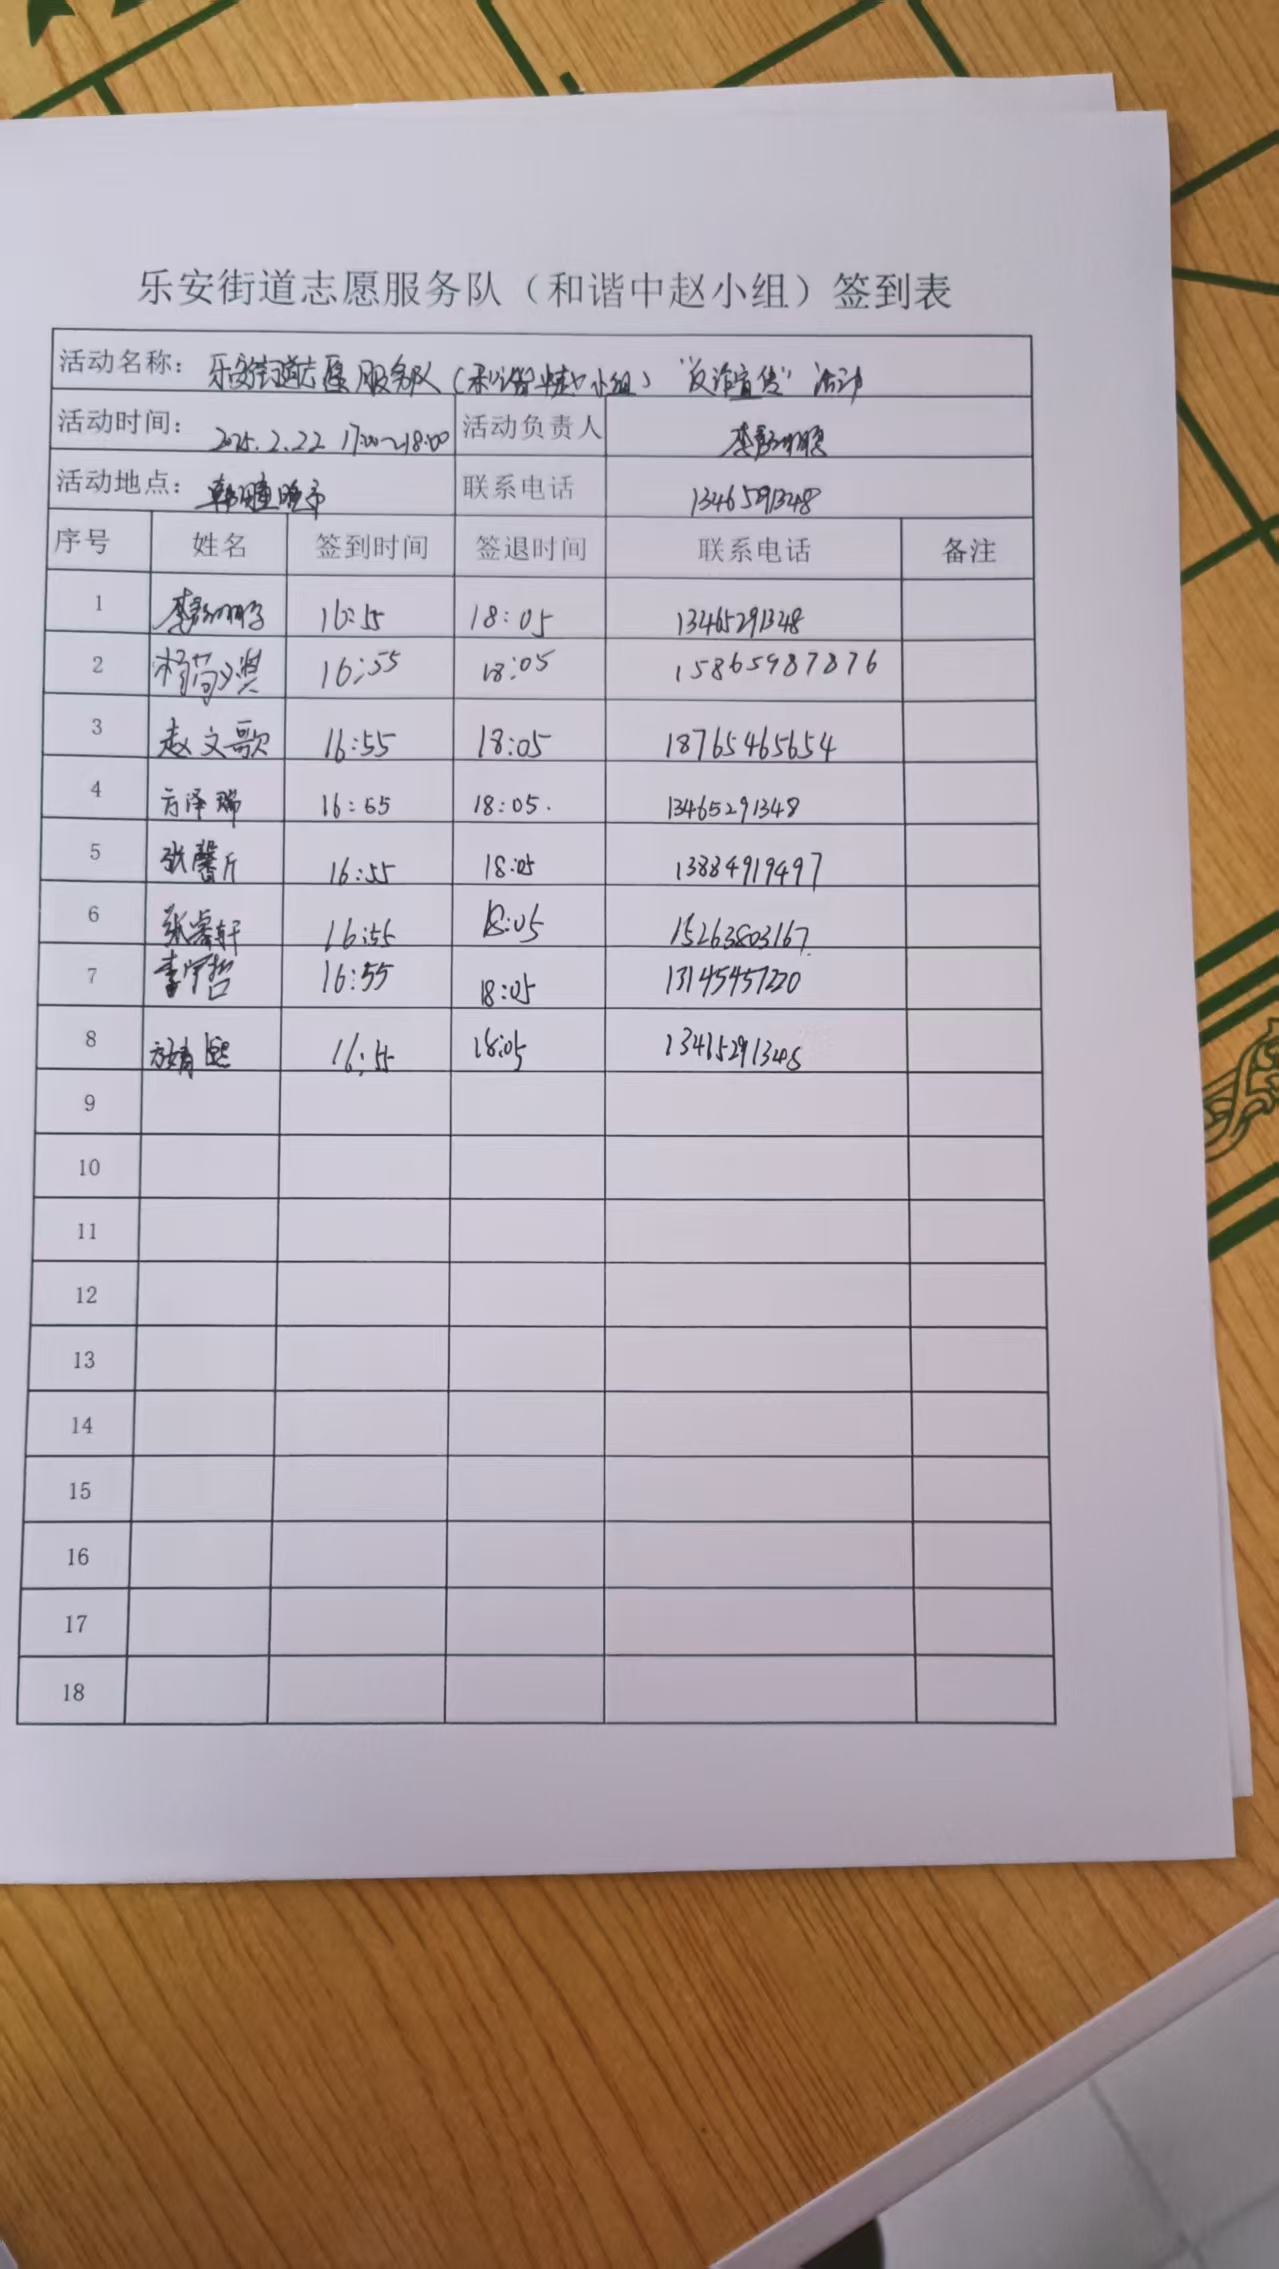 乐安街道志愿服务队（和谐中赵小组）签到表
活动名称： 乐安街道志愿服务队（和谐中赵小组）“反诈宣传”活动
活动时间： 2025.2.22 17:00~18:00 活动负责人 李
活动地点： 联系电话 13465291348
序号 姓名 签到时间 签退时间 联系电话 备注
1 李 16:55 18:05 13465291348
2 杨 16:55 18:05 15865987876
3 赵文歌 16:55 18:05 18765465654
4 方泽瑞 16:55 18:05. 13465291348
5 张馨斤 16:55 18:05 13884919497
6 张睿轩 16:55 18:05 15263803167
7 李宇哲 16:55 18:05 13145457220
8 16:55 18:05 13465291348
9
10
11
12
13
14
15
16
17
18